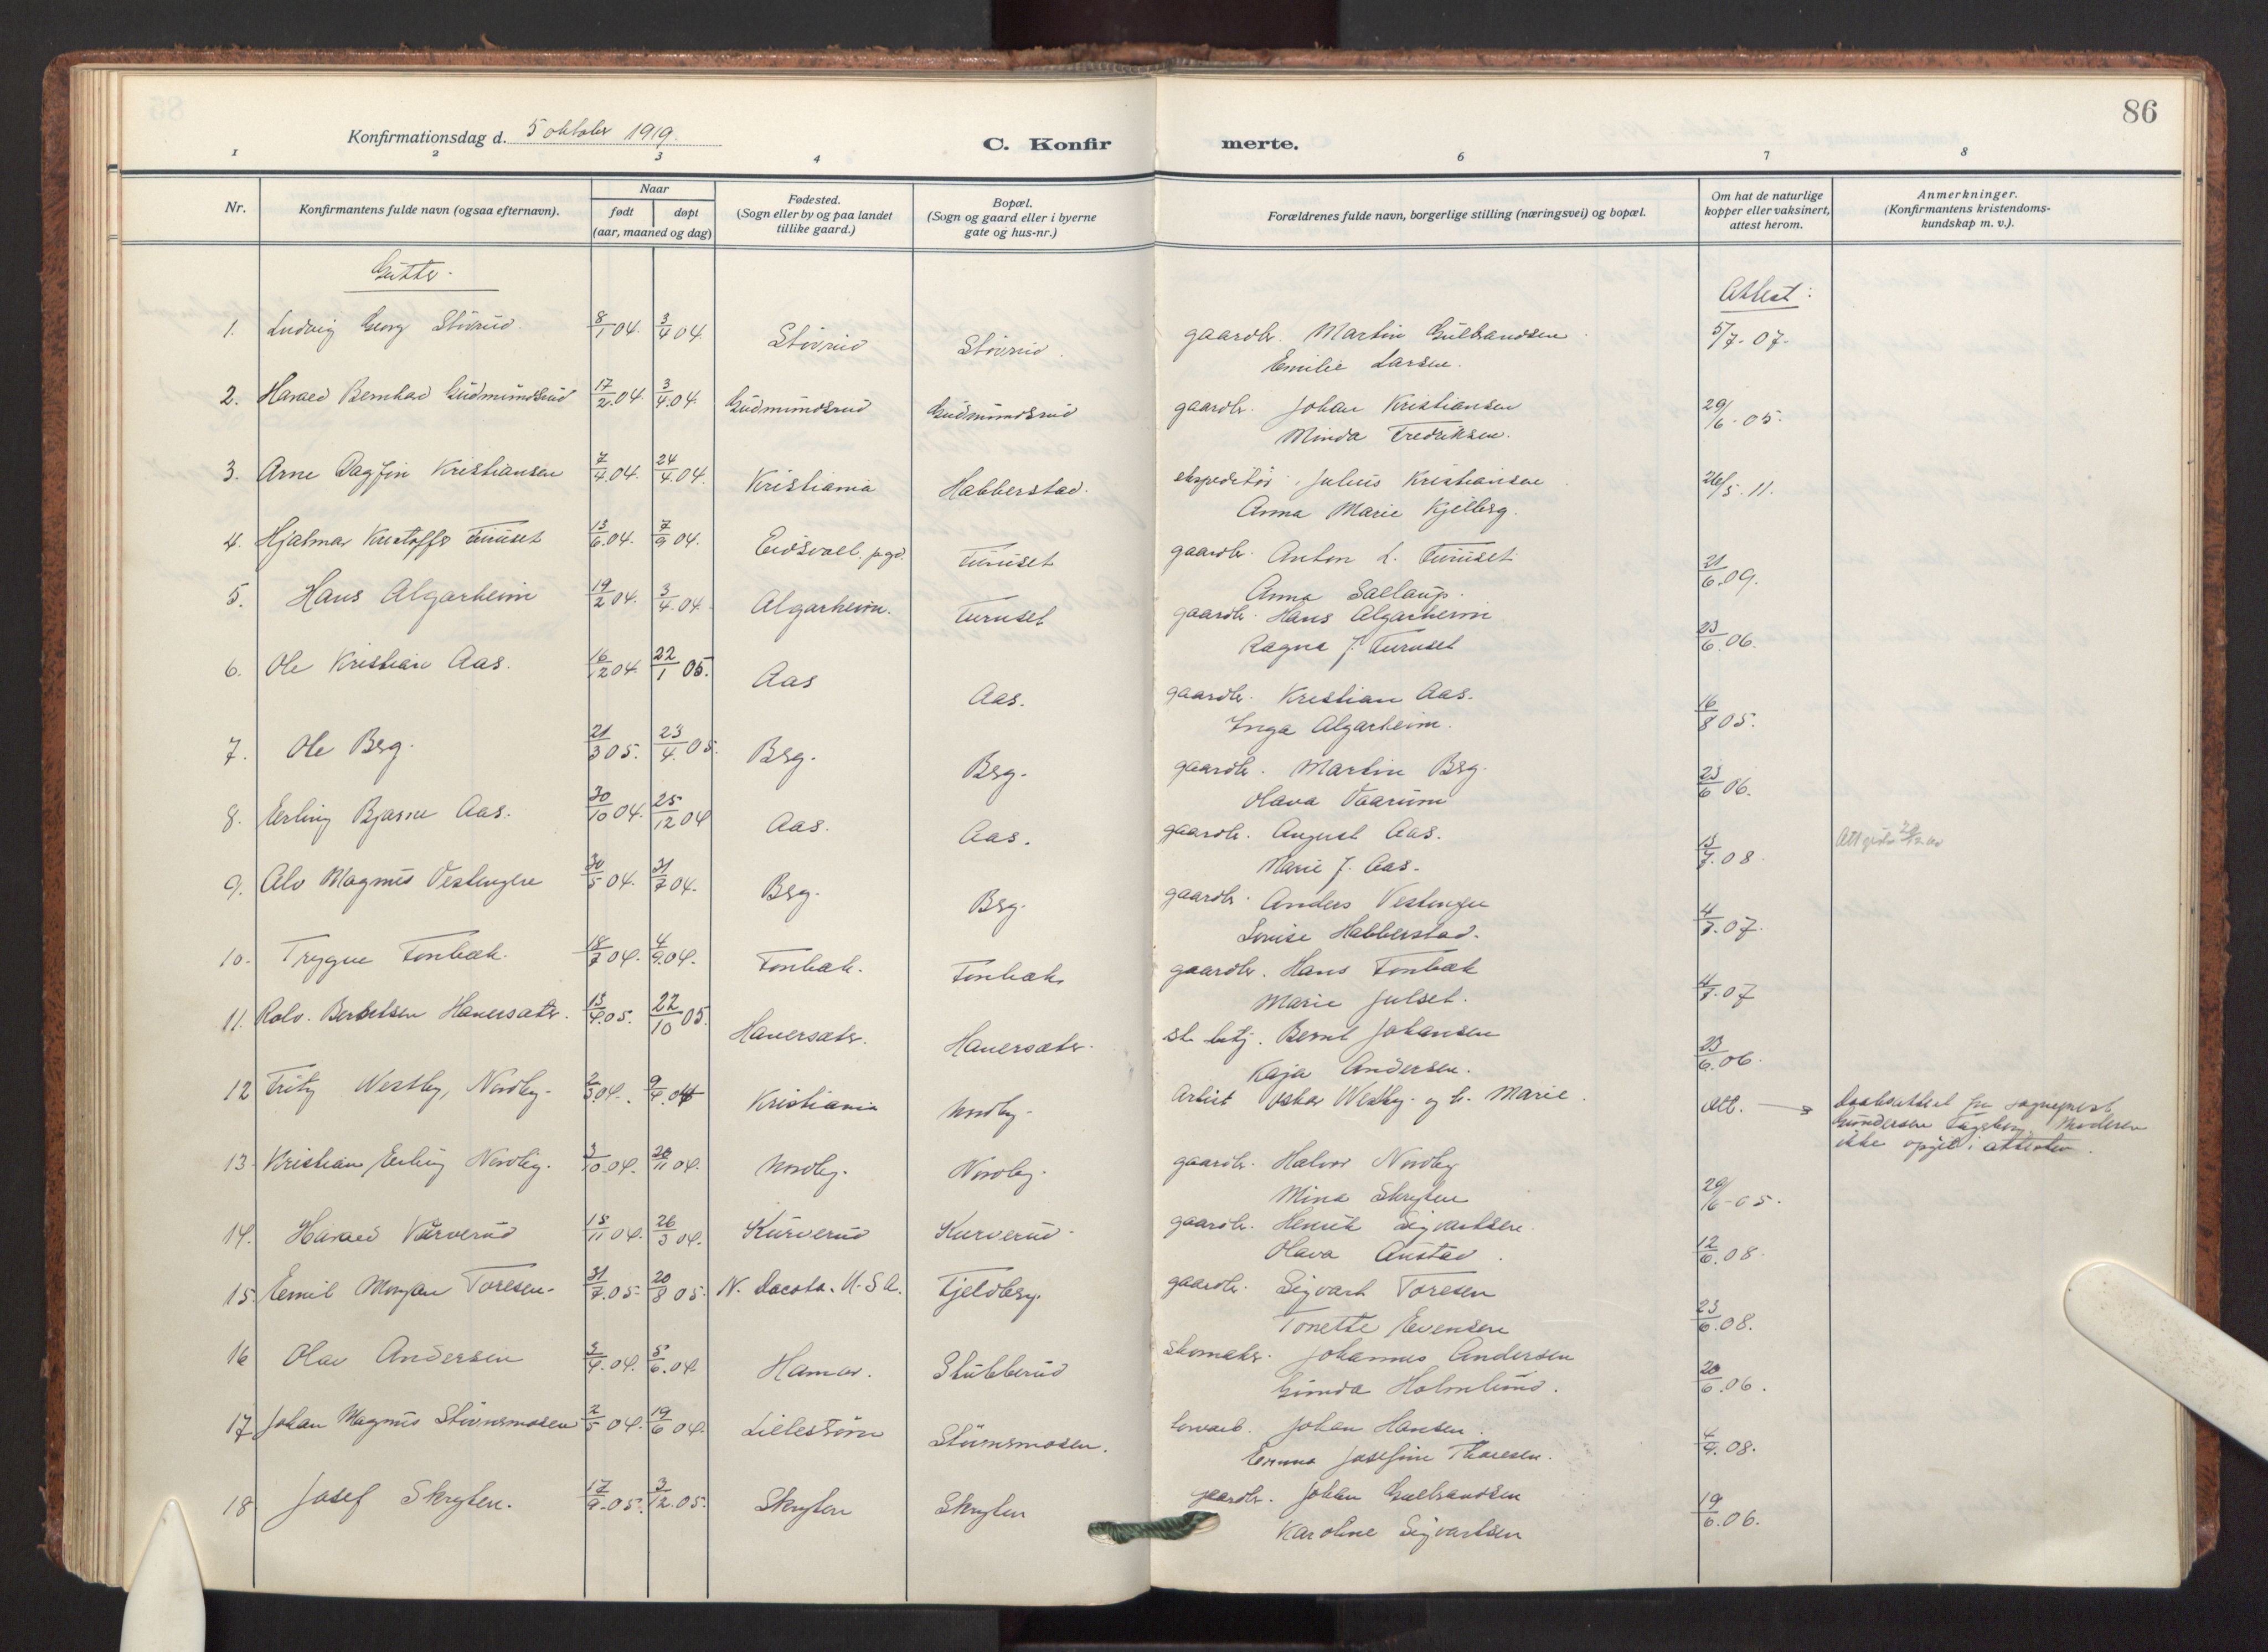 86
Konfirmationsdag d. 5 oktober 1919.
C. Konfir merte.
1 2 3 4 6 7 8
Nr.
Konfirmantens fulde navn (ogsaa efternavn).
Naar
født døpt
(aar, maaned og dag)
Fødested.
(Sogn eller by og paa landet
tillike gaard.)
Bopæl.
(Sogn og gaard eller i byerne
gate og hus-nr.)
Forældrenes fulde navn, borgerlige stilling (næringsvei) og bopæl.
Om hat de naturlige
kopper eller vaksinert,
attest herom.
Anmerkninger.
(Konfirmantens kristendoms-
kundskap m. v.).
Gutter.
Attest:
1. Ludvig Georg Stövrud 8/1 04. 3/4 04. Stövrud Stövrud. gaardbr. Martin Gulbrandsen 5/7-07.
Emilie Larsen.
2. Harald Bernhard Gudmundsrud 17/2.04. 3/4.04. Gudmundsrud Gudmundsrud gaardbr. Johan Kristiansen 29/6-05.
Minda Fredriksen.
3. Arne Dagfin Kristiansen 7/4.04. 24/4.04. Kristiania Habberstad. ekspeditör Julius Kristiansen 26/5.11.
Anna Marie Kjelberg.
4. Hjalmar Kristoffer Furuset 13/6.04. 7/9 04. Eidsvoll. pgd. Furuset gaardbr. Anton L. Furuset 21/6.09.
Anna
5. Hans Algarheim 19/2 04. 3/4.04. Algarheim. Furuset gaardbr. Hans Algarheim 23/6.06.
Ragna J. Furuset
6. Ole Kristian Aas. 16/12 04. 22/1 05. Aas Aas. gaardbr. Kristian Aas. 16/8 05.
Inga Algarheim.
7. Ole Berg. 21/3 05. 23/4. 05. Berg. Berg. gaardbr. Martin Berg. 23/6 06.
Olava Vaarum
8. Erling Bjarne Aas. 30/10 04. 25/12 04 Aas. Aas. gaardbr. August Aas. 13/7.08.
Marie J. Aas.
9. Alv Magnus Vestengen 30/5 04. 31/7 04. Berg. Berg. gaardbr. Anders Vestengen 4/7.07.
Louise Habberstad.
10. Trygve Fonbæk. 18/7 04. 4/9.04. Fonbæk. Fonbæk gaardbr. Hans Fonbæk 4/7.07
Marie Julset.
11. Rolv. Berntsen Hauersæter. 13/4.05. 22/10 05. Hauersæter. Hauersæter. st. betj. Bernt Johansen 23/6.06.
Kaja Andersen.
12 Fritz Westby, Nordby. 2/3.04. 9/4.04 Kristiania Nordby. Artist Oskar Westby. og h. Marie. Att. Daabsattest fra sogneprest
Gundersen Moderen
ikke opgit i attesten.
13 Kristian Erling Nordby. 3/10.04. 20/11 04. Nordby. Nordby. gaardbr. Halvor Nordby 29/6-05.
Mina Skryten
14. Harald Kurverud 13/11 04. 26/3 04. Kurverud Kurverud. gaardbr. Henrik Sigvartsen. 12/6.08.
Olava Austad.
15. Emil Morgan Toresen. 31/7.05. 20/8 05. N. Dacota. U.S.A. Fjeldberg. gaardbr. Sigvart Toresen 23/6.08.
Tonette Evensen
16 Olav Andersen 3/4.04. 5/6.04. Hamar. Stubberud Skomaker. Johannes Andersen 20/6.06.
Gunda Holmlund.
17 Johan Magnus Stensmosen 2/5 04. 19/6 04. Lilleström Stensmosen. Johan Hansen. 4/9.08.
Emma Josefine Thoresen.
18 Josef Skryten. 17/9.05. 3/12.05. Skryten Skryten gaardbr. Johan Gulbrandsen 19/6.06.
Karoline Sigvartsen